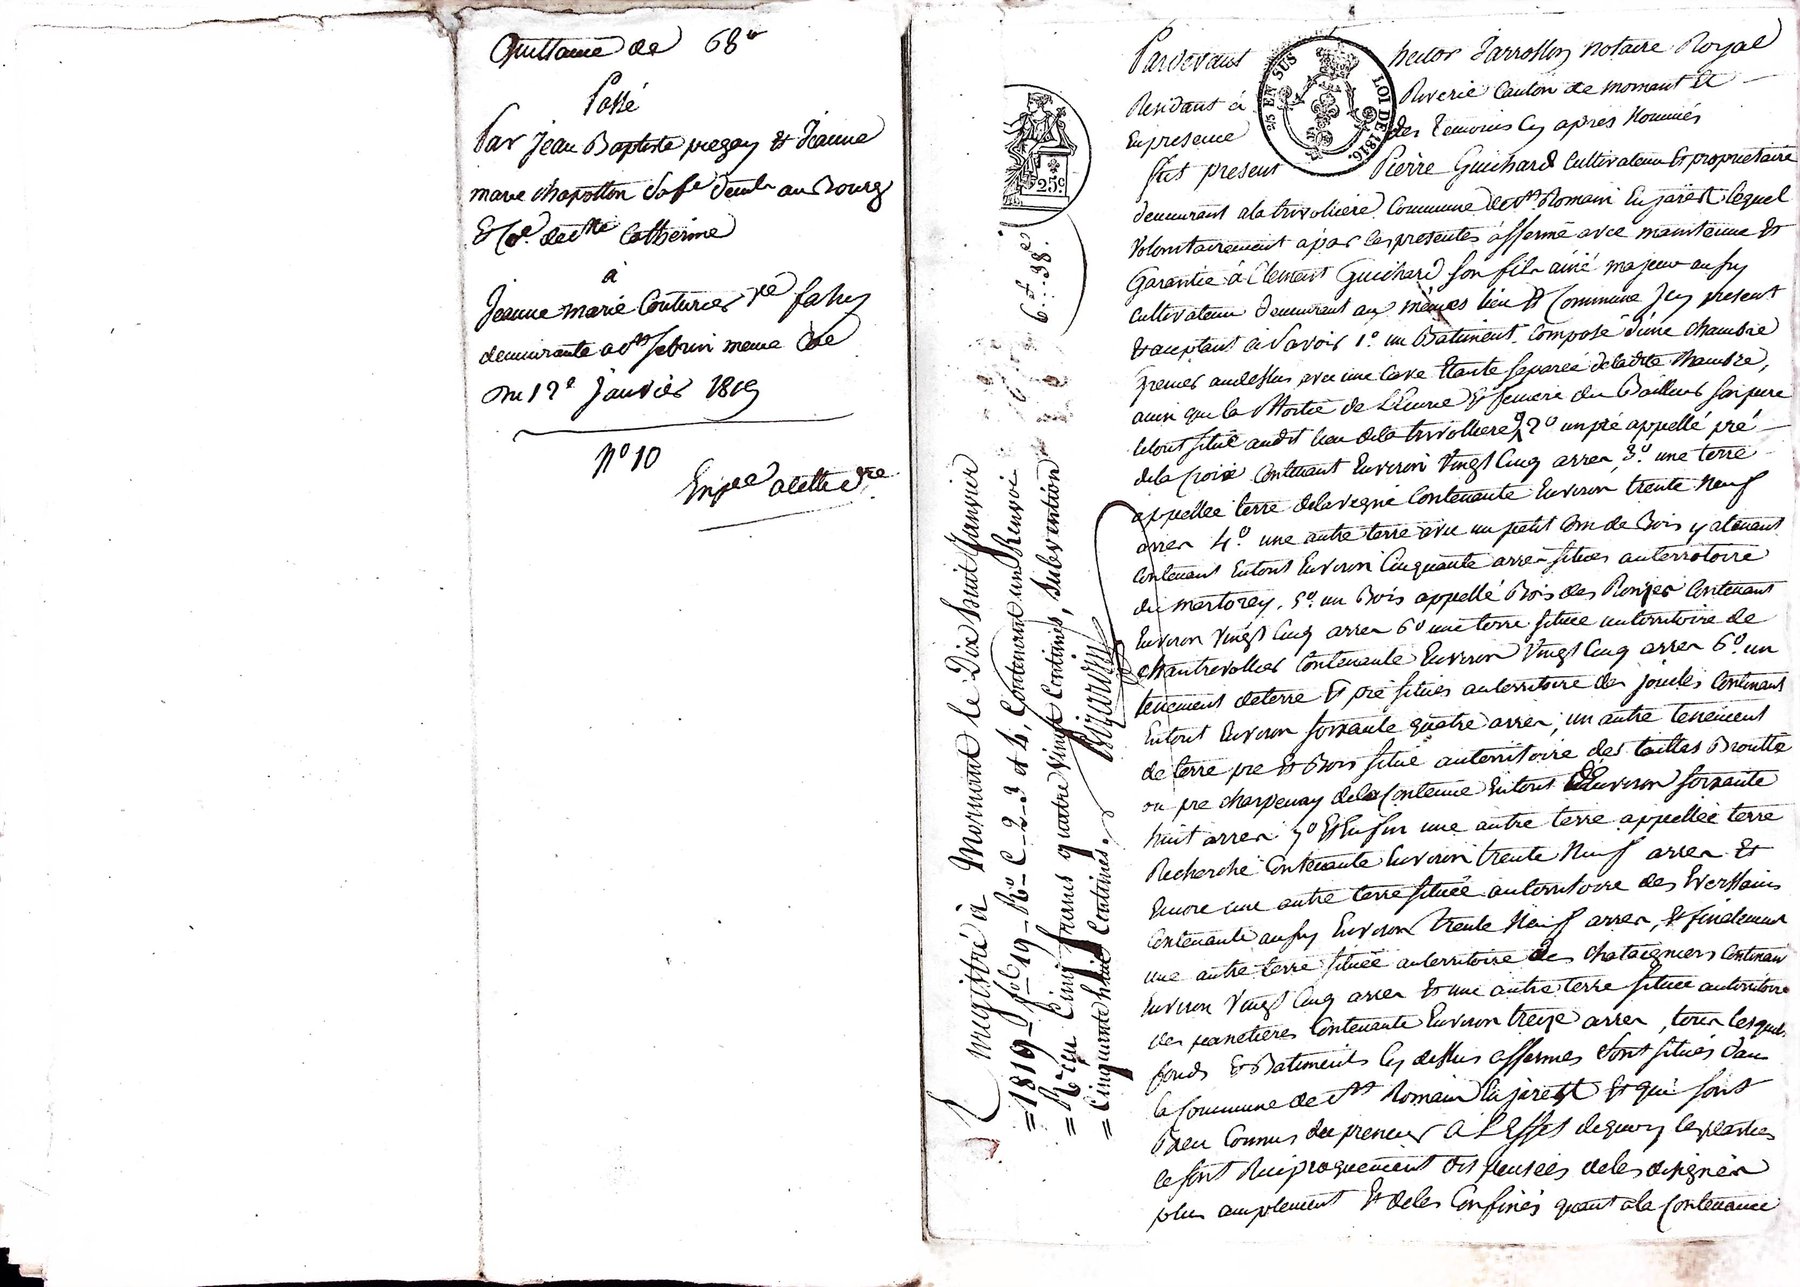 Quittance de 68#
Passé
Par Jean Baptiste pregay et Jeanne
marie chapotton Sa fe demt au Bourg
et Cne de Ste Catherine
à
Jeanne marie Couturier ve fahy
demeurante a St Sebrin meme Cne
Du 12e Janvier 1819
No 10
Enree a cette dre
Pardevant hector Jarrosson notaire Royal
Residant à Riverie Canton de mornant et
En presence des temoins cy apres Nommés
fut present Pierre Guichard Cultivateur et proprietaire
demeurant a la trivoliere Commune de St Romain En jarest lequel
volontairement a par les presentes affermé avec maintenue et
Garantie à Clement Guichard son fils ainé majeur aussy
cultivateur demeurant aux mêmes lieu et Commune Icy present
et acceptant à Savoir 1o un Batiment Composé d'une chambre
Grenier au dessus avec une cave Etante separée de ladte chambre,
ainsi que la Moitié de L'Ecurie et feniere du Bailleur
le tout situé audit lieu de la trivolliere, 2o un pré appellé pré
de la Croix contenant Environ Vingt Cinq arres, 3o une terre
appellée terre de la vigne Contenante Environ trente Neuf
arres 4o une autre terre avec un petit de Bois y atenant
Contenant Entout Environ Cinquante arres situés au territoire
du martorey, 5o un Bois appellé Bois des Ronzes Contenant
Environ Vingt Cinq arres 6o une terre située au territoire de
chantrevollier Contenante Environ Vingt Cinq arres 6o un
tenement de terre et pré situés au territoire des joucles Contenant
Entout Environ soixante quatre arres, un autre tenement
de terre pre et Bois situé au territoire des tailles Broutte
ou pre charpenay de la Contenue Entout Environ soixante
huit arres 7o et Enfin une autre terre appellée terre
Recherche Contenante Environ trente Neuf arres et
Encore une autre terre située au territoire des Verssains
Contenante aussy Environ trente Neuf arres, et finalement
une autre terre située au territoire des chataigniers Contenant
Environ Vingt Cinq arres et une autre terre située au territoire
des Contenante Environ treize arres, tous lesquels
fonds et Batiments cy dessus affermés sont situés dans
la Commune de St Romain En jarest et qui sont
Bien Connus du preneur a L'Effet de quoy les parties
se sont Reciproquement dispensées de les designer
plus amplement et de les Confiner quant a la Contenance
25 EN SUS
LOI DE 1816.
25c
6.f 38.e
Enregistré à Mornant le Dix huit Janvier
=1819- fol 19- Ro C-2-3 et 4, Contenant un Renvoi
=Reçu Cinq francs quatre Vingt Centimes, subvention
=Cinquante huit Centimes.